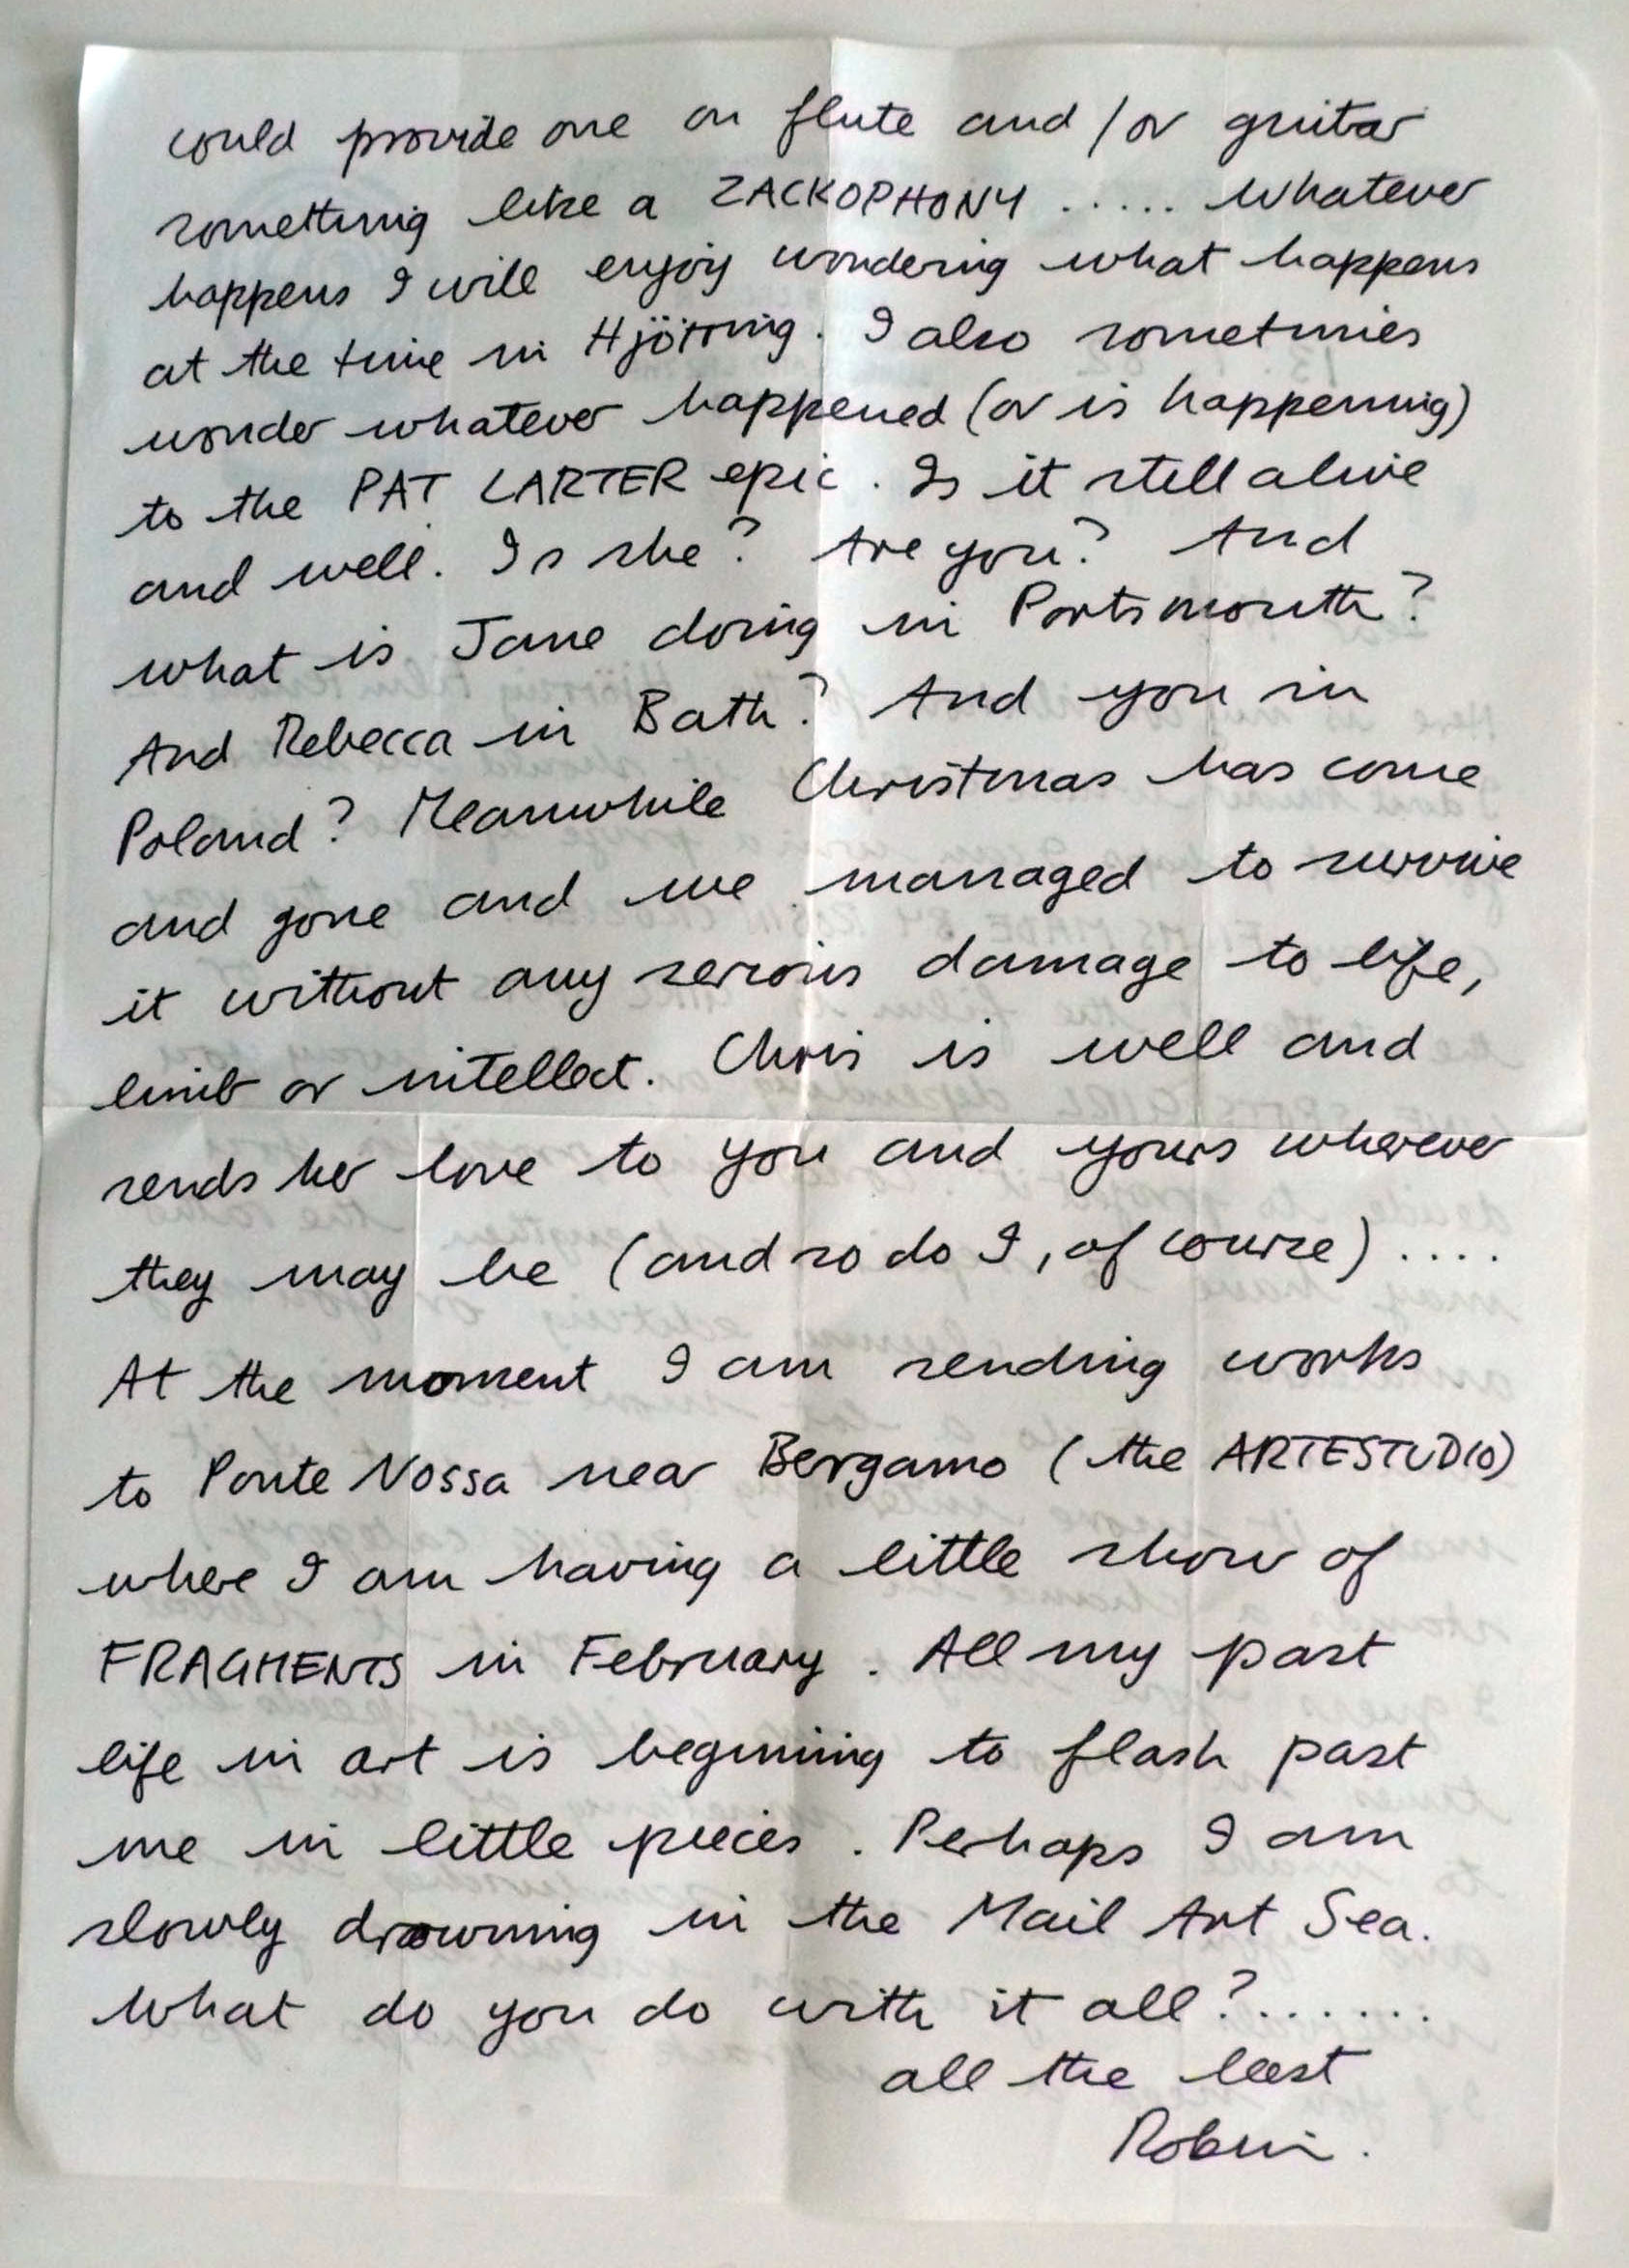 could provide one on flute and/or guitar
something like a ZACKOPHONY ..... Whatever
happens I will enjoy wondering what happens
at the time in Hjörring. I also sometimes
wonder whatever happened (or is happening)
to the PAT LARTER epic. Is it still alive
and well. Is she? Are you? And
what is Jane doing in Portsmouth?
And Rebecca in Bath? And you in
Poland? Meanwhile Christmas has come
and gone and we managed to survive
it without any serious damage to life,
limb or intellect. Chris is well and
sends her love to you and yours wherever
they may be (and so do I, of course) ....
At the moment I am sending works
to Ponte Nossa near Bergamo (the ARTESTUDIO)
where I am having a little show of
FRAGMENTS in February. All my past
life in art is beginning to flash past
me in little pieces. Perhaps I am
slowly drowning in the Mail Art Sea.
What do you do with it all?.......
all the best
Robin.